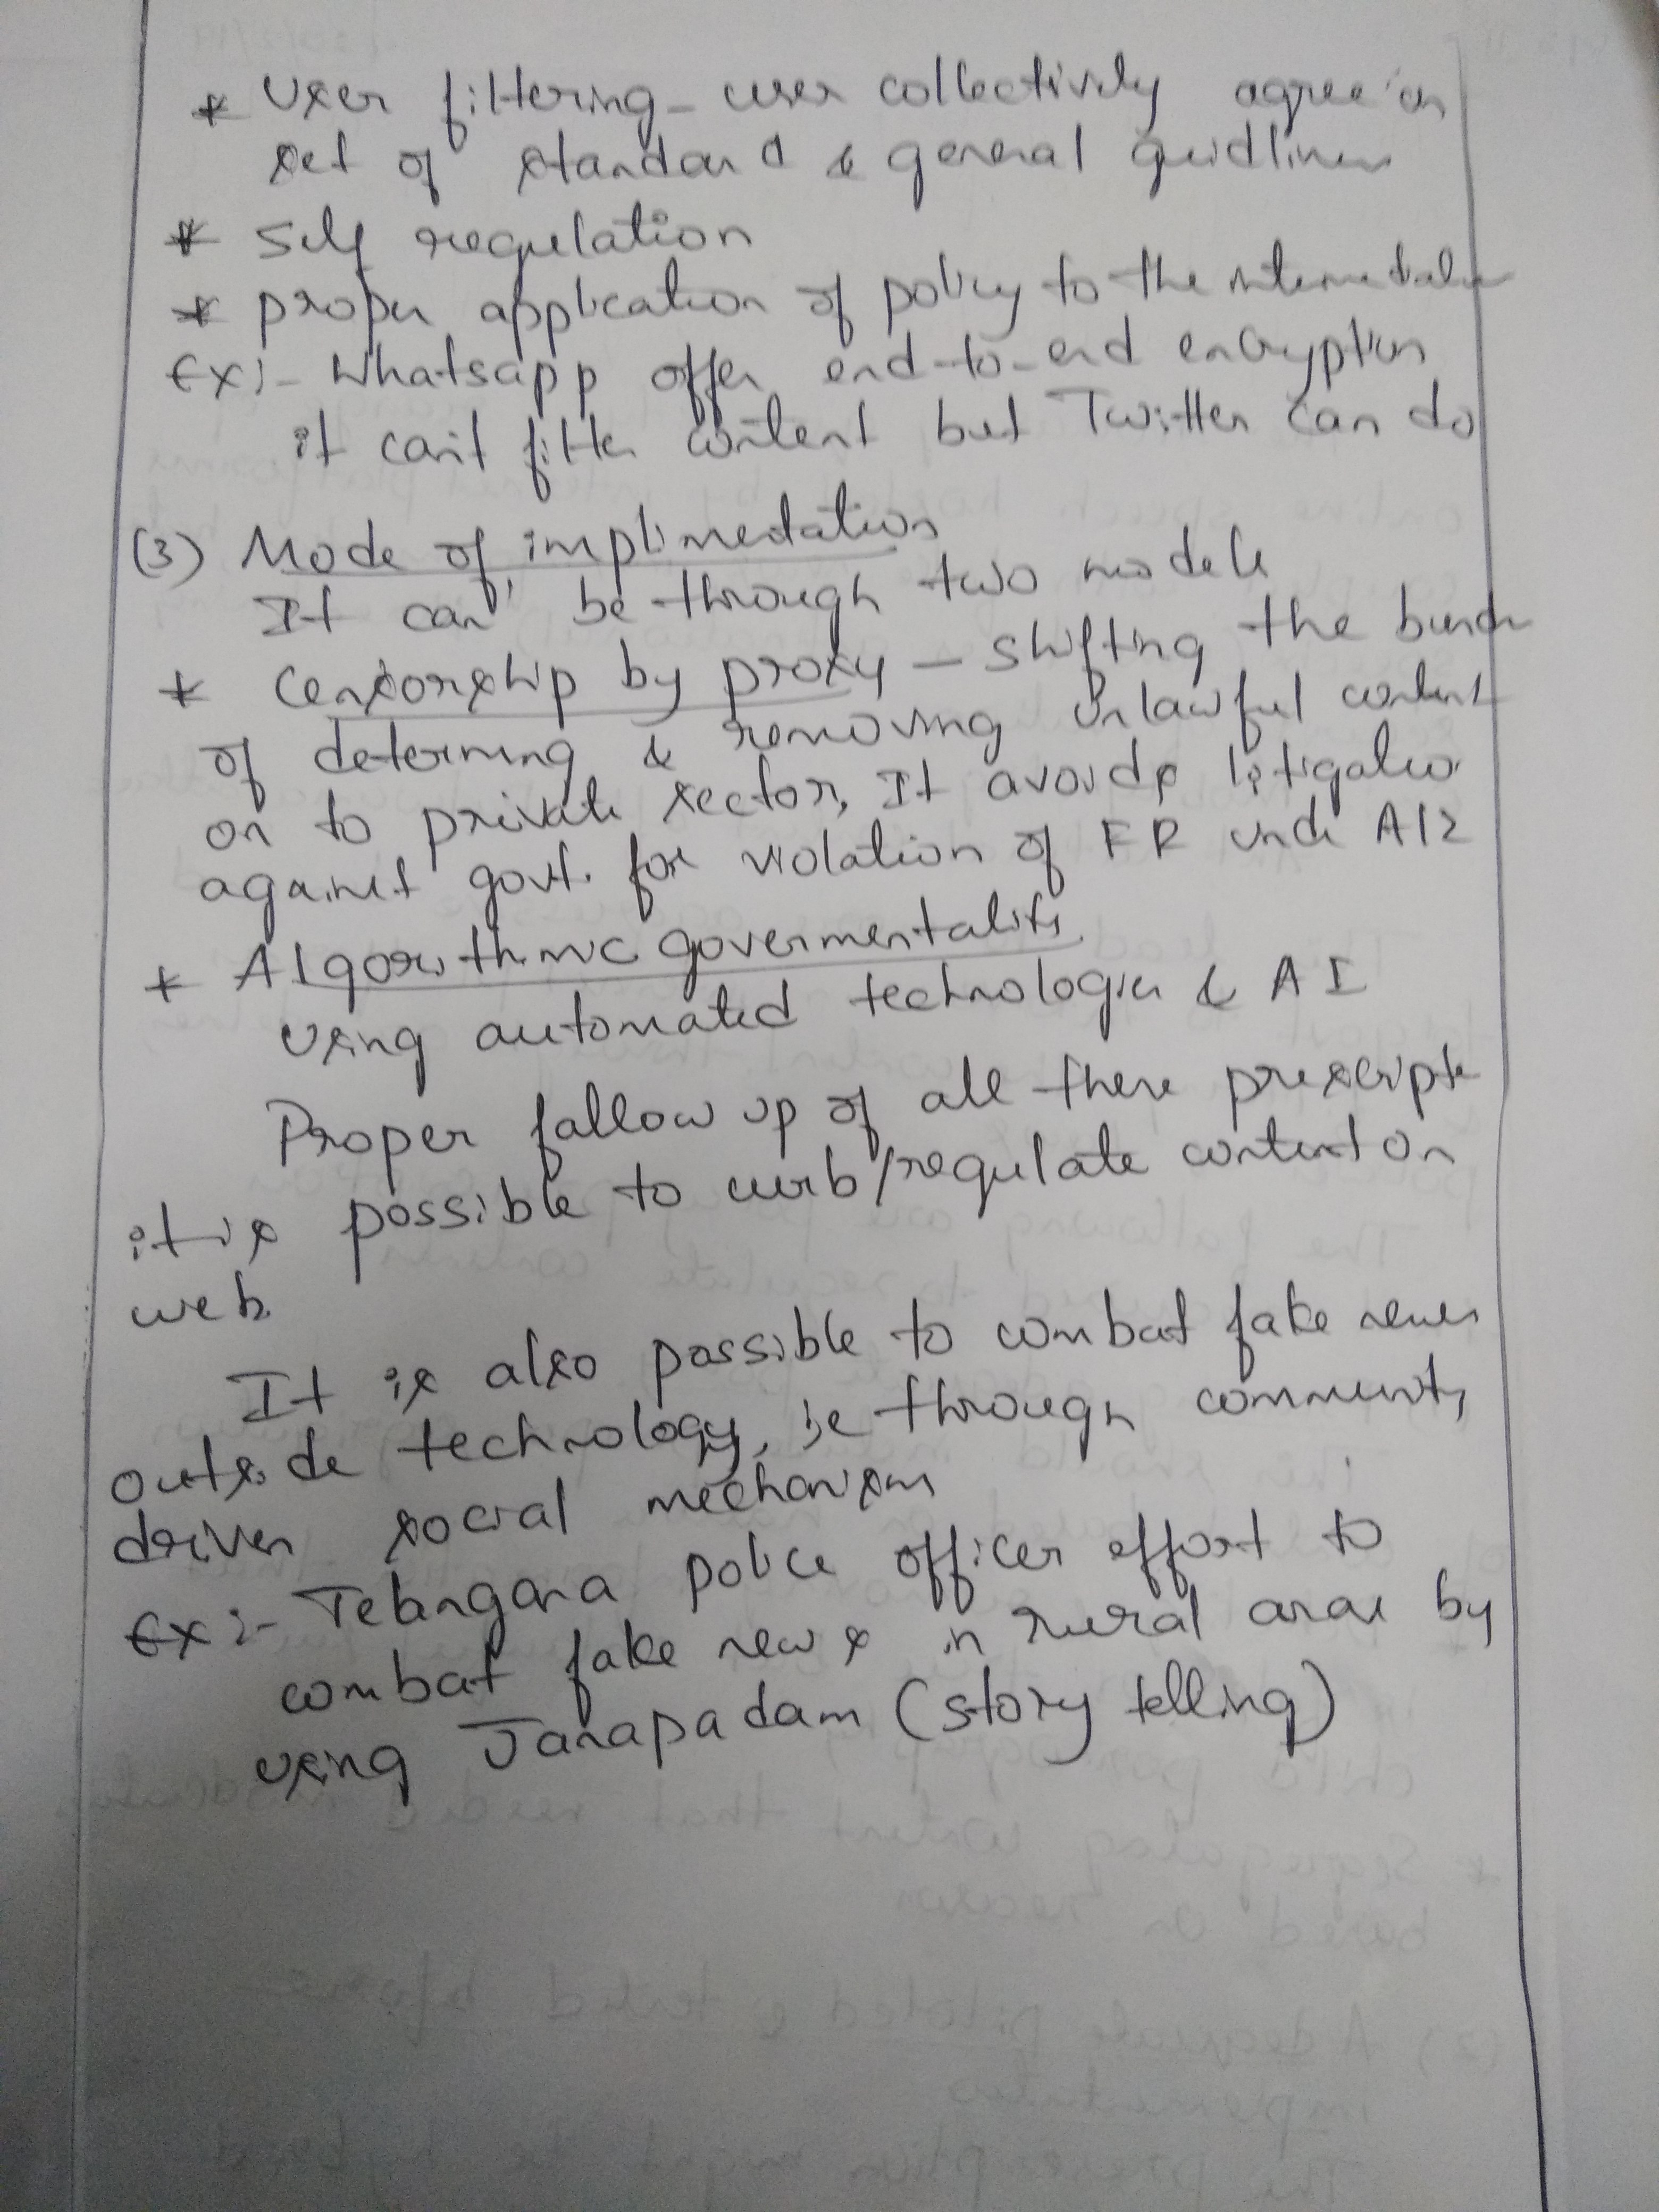 * User filtering - user collectively agree on
set of standard & general guidlines
* Self regulation
* proper application of policy to the
Ex:- Whatsapp offer end-to-end encryption
it can't filter content but Twitter can do
(3) Mode of implimentation
It can be through two models
* Censorship by proxy - shifting the burden
of determing & removing unlawful content
on to private sector, It avoids litigation
against govt. for violation of FR under A12
* Algorithmic governmentality
using automated technologies & AI
Proper fallow up of all these
it is possible to curb/regulate content on
web.
It is also possible to combat fake news
outside technology, ie through community
driven social mechanism
Ex:- Telangana police officer effort to
combat fake news in rural areas by
using Janapadam (story telling)